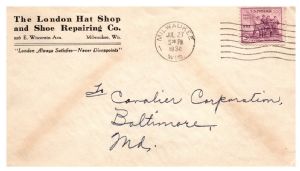 The London Hat Shop
and Shoe Repairing Co.
226 E. Wisconsin Ave. Milwaukee, Wis.
"London Always Satisfies—Never Disappoints"
MILWAUKEE
JUL 27
5 PM
WIS.
To
Cavalier Corporation,
Baltimore,
Md.